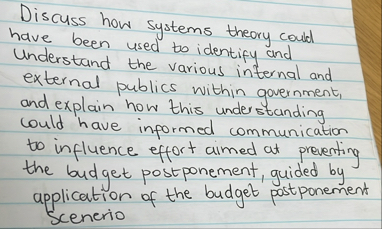 Discuss how systems theory could
have been used to identify and
Understand the various internal and
external publics within government,
and explain how this understanding
could have informed communication
to influence effort aimed at preventing
the budget postponement, guided by
application of the budget postponement
Scenerio